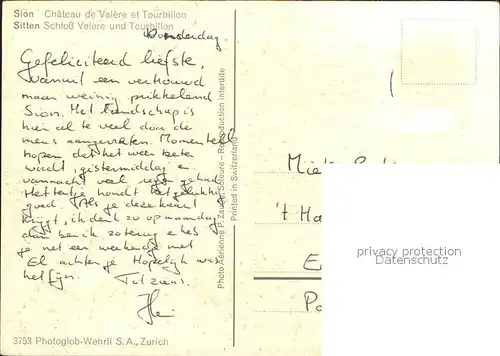 Sion Château de Valère et Tourbillon
Sitten Schloß Valère und Tourbillon
Donderdag
Gefeliciteerd liefste,
vanuit een vertrouwd
maar weinig prikkelend
Sion. Het landschap is
hier al te veel door de
mens aangevreten. Momenteel
hopen dat het weer beter
wordt, gistermiddag en
vannacht veel regen gehad.
Het tentje houdt het gelukkig
goed. Als je deze kaart
krijgt, ik denk zo op maandag,
dan ben ik zo terug
je met een weekendje met
El achter je. Hopelijk was
het fijn.
Tot ziens.
Photo aérienne P. Zaugg Soleure – Reproduction interdite
Printed in Switzerland
't Ha
privacy protection
ansichtskarten-center.de
3753 Photoglob-Wehrli S.A., Zurich